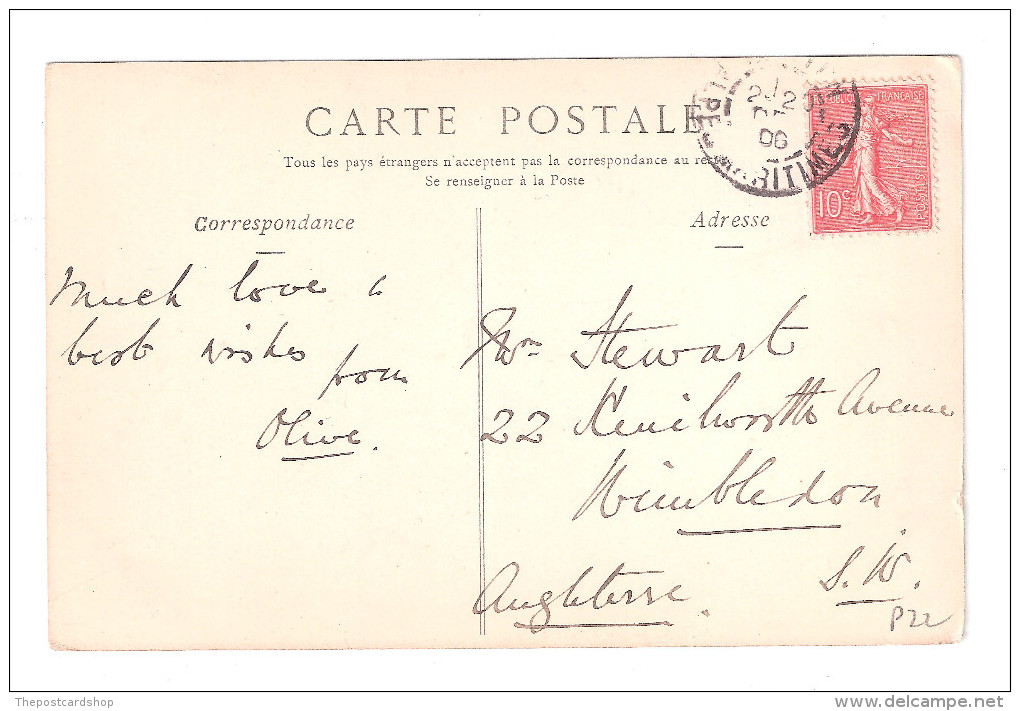 CARTE POSTALE
Tous les pays étrangers n'acceptent pas la correspondance au
Se renseigner à la Poste
Correspondance
Adresse
RÉPUBLIQUE FRANÇAISE
10c
POSTES
MARITIMES
06
Much love &
best wishes
from
Olive.
Stewart
22 Kenilworth Avenue
Wimbledon
S.W.
Angleterre.
P22
Thepostcardshop
delcampe.net